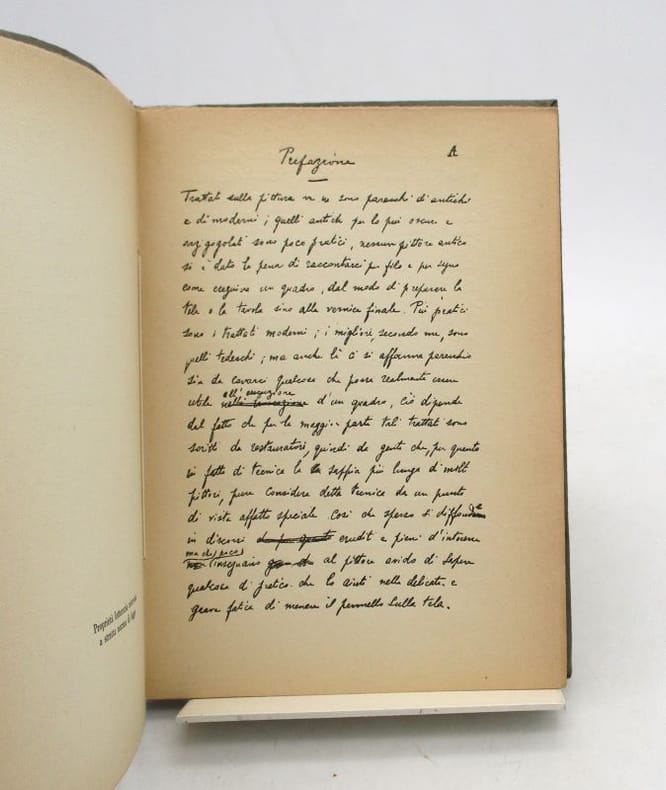 Prefazione
A
Trattati sulla pittura ve ne sono parecchi d'antichi
e di moderni; quelli antichi per lo più oscuri e
arzigogolati sono poco pratici, nessun pittore antico
si è dato la pena di raccontarci per filo e per segno
come eseguiva un quadro, dal modo di preparare la
tela o la tavola sino alla vernice finale. Più pratici
sono i trattati moderni; i migliori, secondo me, sono
quelli tedeschi; ma anche lì ci si affanna parecchio
sia da cavarci qualcosa che possa realmente
all'esecuzione
utile d'un quadro, Ciò dipende
dal fatto che per la maggior parte tali trattati sono
scritti da restauratori, quindi da gente che, per quanto
in fatto di tecnica la sappia più lunga di molti
pittori, pure considera detta tecnica da un punto
di vista affatto speciale. Così che spesso si diffondono
in discorsi eruditi e pieni d'interesse
ma che poco
insegnano al pittore avido di sapere
qualcosa di pratico che lo aiuti nella delicata e
grave fatica di menare il pennello sulla tela.
Proprietà letteraria
a stretta norma di legge